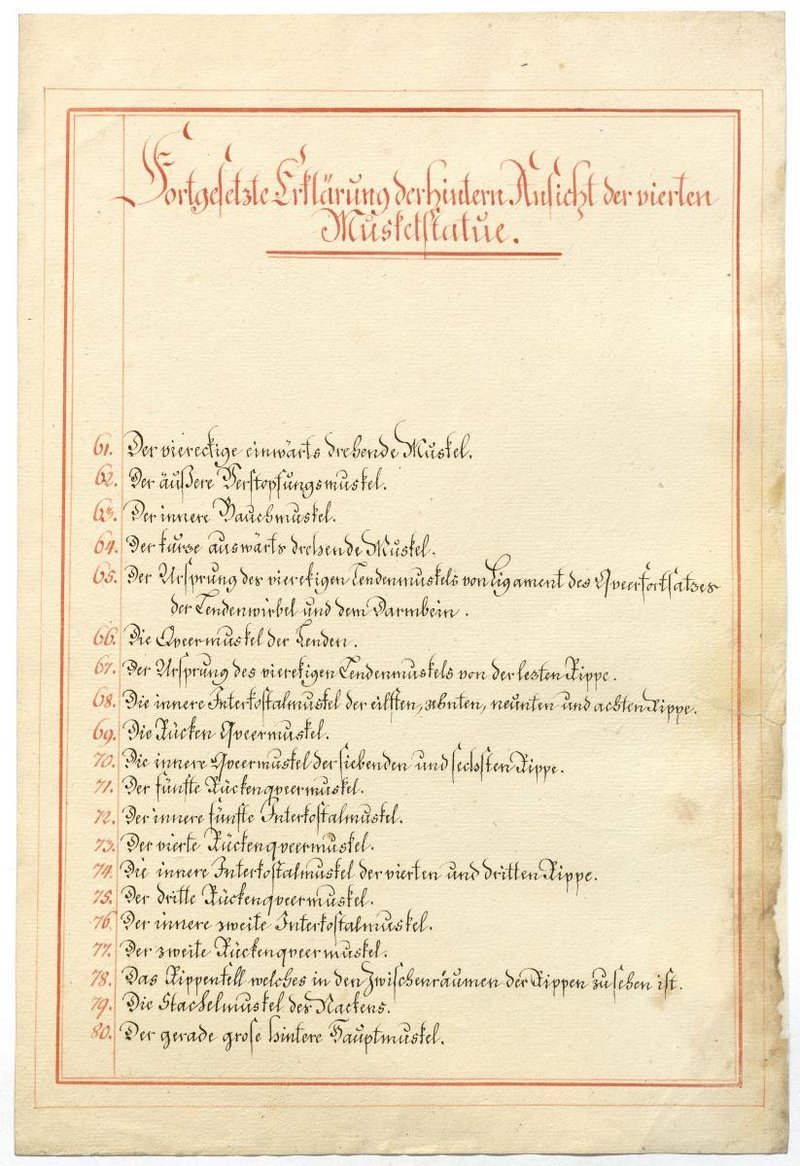 Fortgesetzte Erklärung der hintern Ansicht der vierten
Muskelstatue.
61. Der viereckige einwärts drehende Muskel.
62. Der äußere Verstopfungsmuskel.
63. Der innere Bauchmuskel.
64. Der kurze auswärts drehende Muskel.
65. Der Ursprung des vierekigen Lendenmuskels von Ligament des Qveerfortsatzes
der Lendenwirbel und dem Darmbein.
66. Die Qveermuskel der Lenden.
67. Der Ursprung des vierekigen Lendenmuskels von der lezten Rippe.
68. Die innere Interkostalmuskel der eilften, zehnten, neunten und achten Rippe.
69. Die Rücken Qveermuskel.
70. Die innere Qveermuskel der siebenden und sechsten Rippe.
71. Der fünfte Rückenqveermuskel.
72. Der innere fünfte Interkostalmuskel.
73. Der vierte Rückenqveermuskel.
74. Die innere Interkostalmuskel der vierten und dritten Rippe.
75. Der dritte Rückenqveermuskel.
76. Der innere zweite Interkostalmuskel.
77. Der zweite Rückenqveermuskel.
78. Das Rippenfell welches in den Zwischenräumen der Rippen zu sehen ist.
79. Die Stachelmuskel des Nackens.
80. Der gerade grose hintere Hauptmuskel.